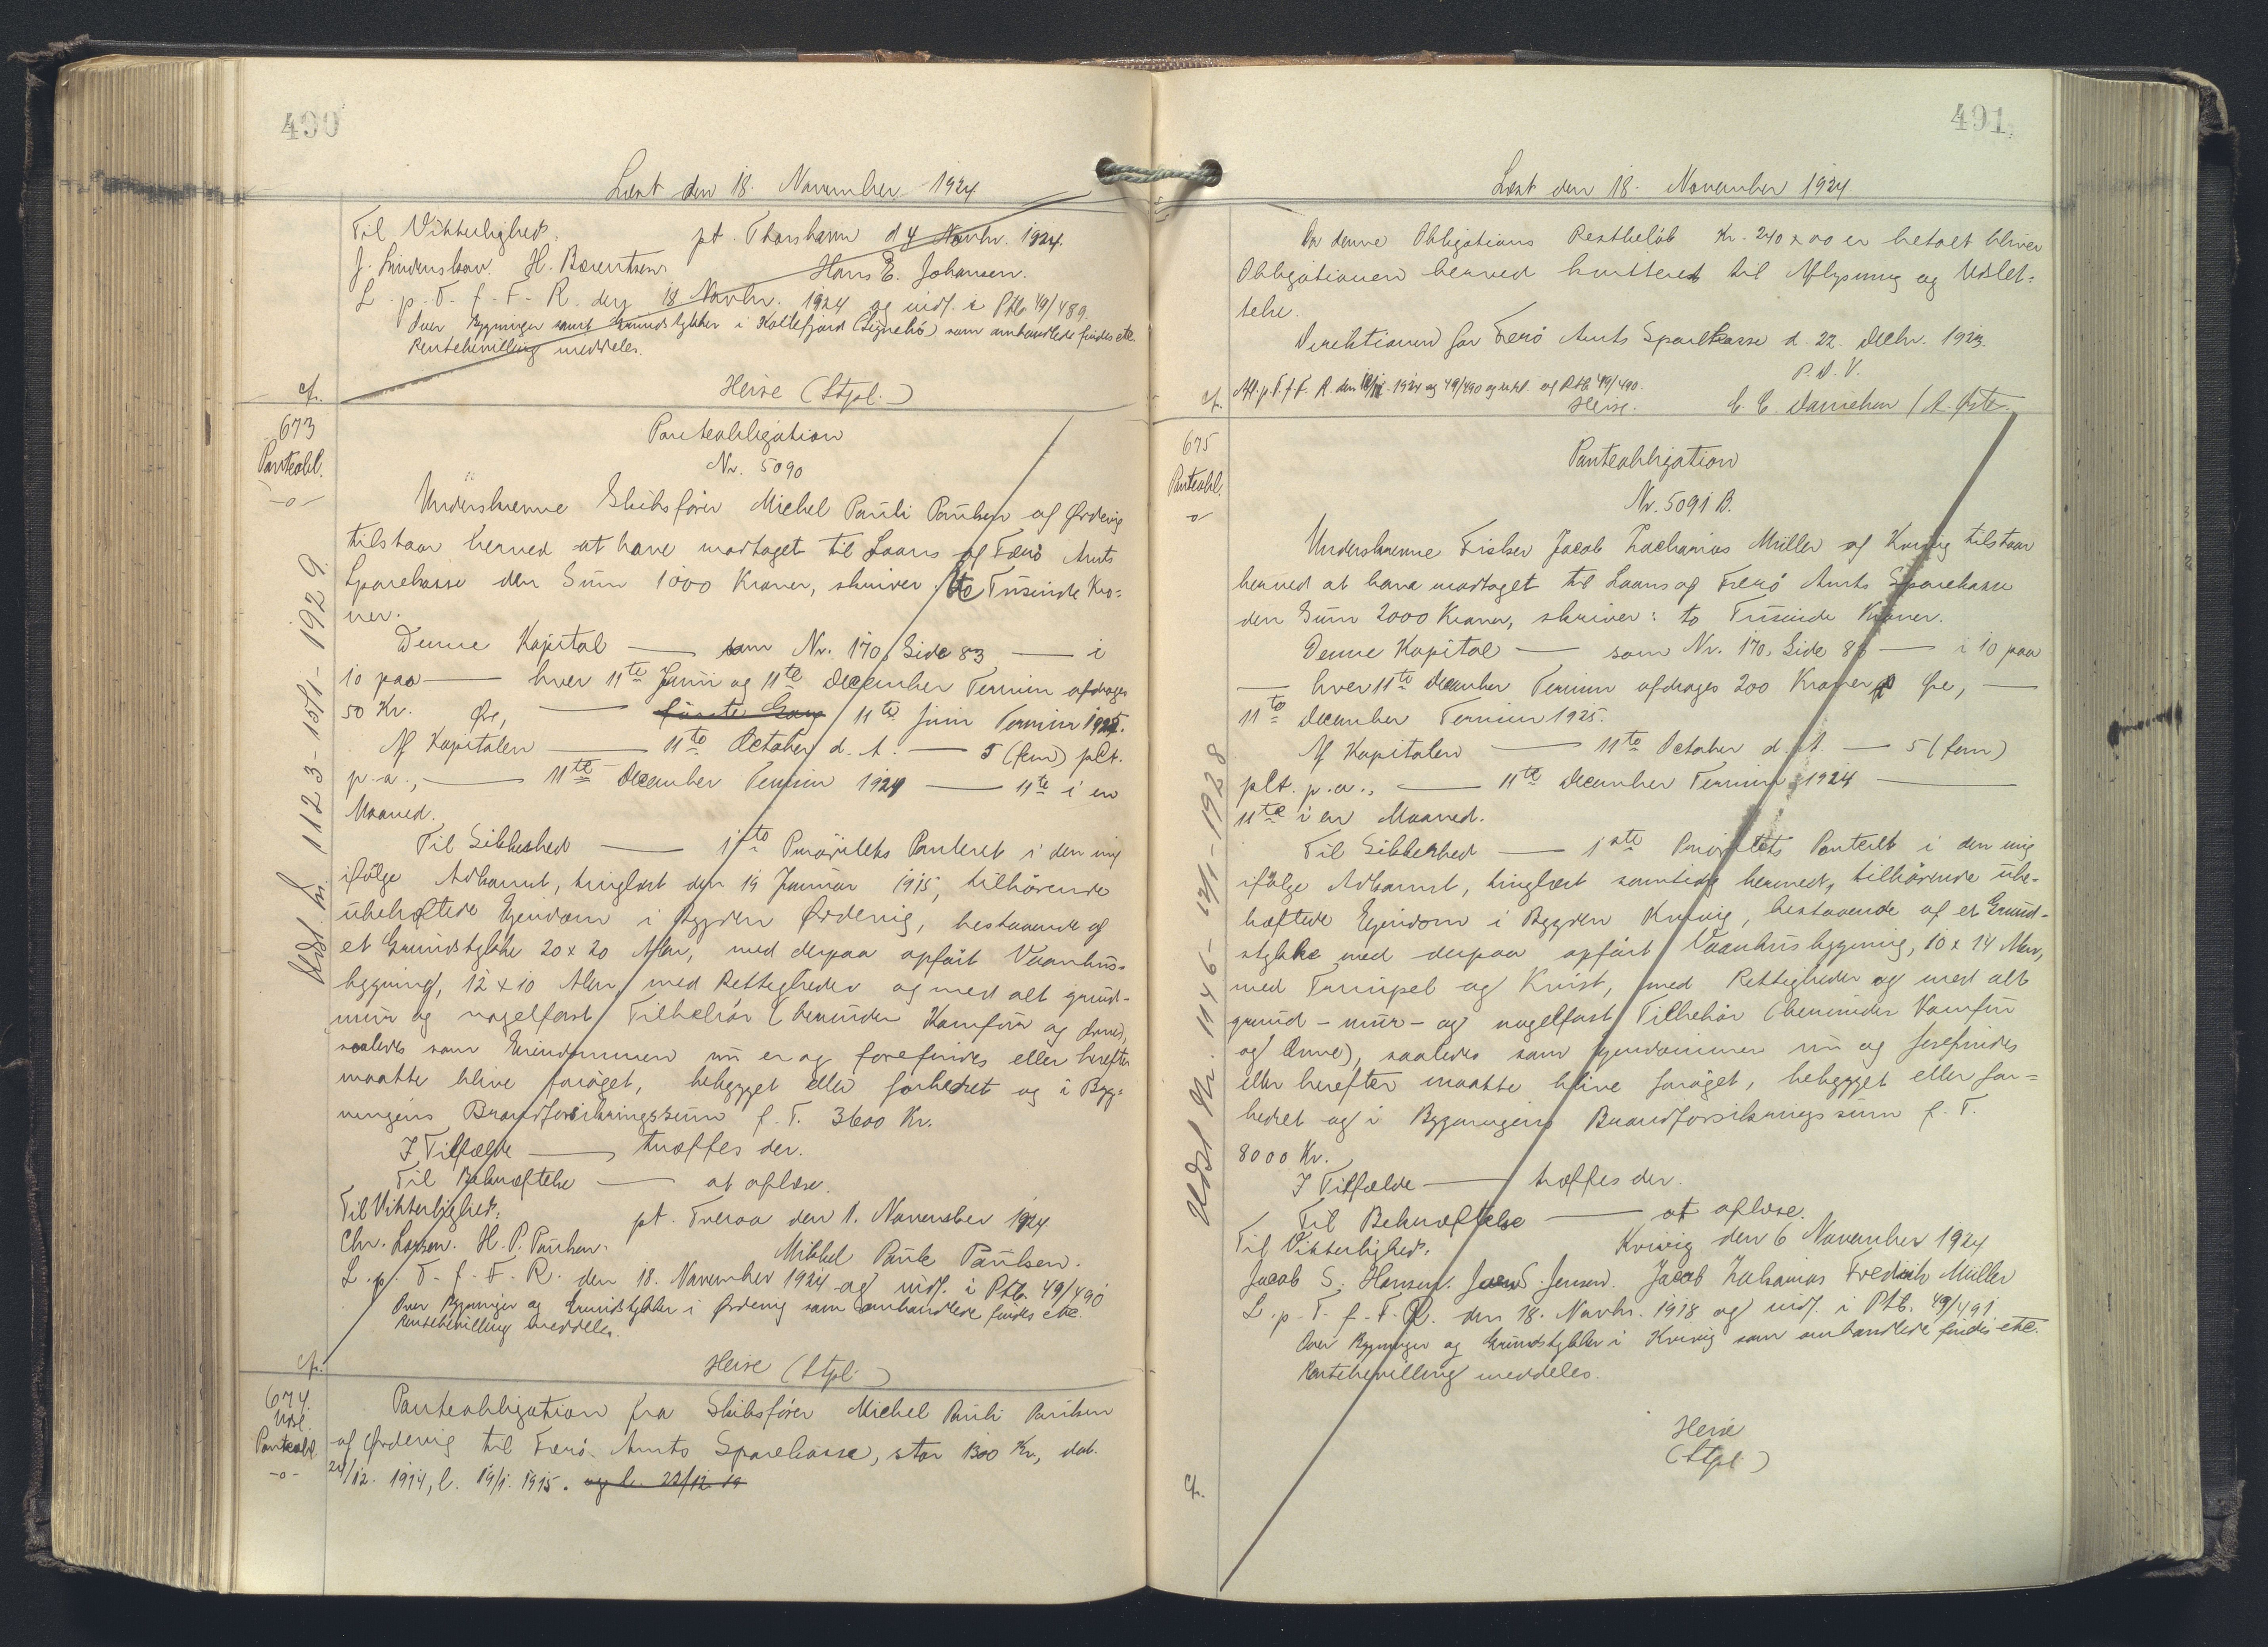 490
Læst den 18. November 1924
Til Vitterlighed: pt. Thorshavn d 4 Novbr. 1924.
J. Lindenskov. H. Berentsen. Hans E. Johansen.
L. p. T. f. F. R. den 18 Novbr. 1924 og indf. i Ptb. 49/489.
Over Bygninger samt Grundstykker i Kollefjord (Signebø) som omhandlede findes etc.
Rentebevilling meddeles.
cfr. Heise (Stpl.)
673
Panteobl.
-o-
Panteobligation
Nr. 5090
Underskrevne Skibsfører Michel Pauli Paulsen af Ørdevig
tilstaar herved at have modtaget til Laans af Færø Amts
Sparekasse den Sum 1000 Kroner, skriver: Tusinde Kro-
ner.
Denne Kapital — som Nr. 170, Side 83 — i
10 paa — hver 11te Juni og 11te December Termin afdrages
50 Kr. Øre, — første Gang 11te Juni Termin 1925.
Af Kapitalen — 11te October d. A. — 5 (fem) pCt.
p. a., — 11te December Termin 1924 — 11te i en
Maaned.
Til Sikkerhed — 1ste Prioritets Panteret i den mig
ifølge Adkomst, tinglæst den 19 Januar 1915, tilhørende
ubehæftede Ejendom i Bygden Ørdevig, bestaaende af
et Grundstykke 20 x 20 Alen, med derpaa opført Vaanhus-
bygning, 12 x 10 Alen, med Rettigheder og med alt grund-
mur og nagelfast Tilbehör (herunder Komfur og Ovne),
saaledes som Ejendommen nu er og forefindes eller herefter
maatte blive forøget, bebygget eller forbedret og i Byg-
ningens Brandforsikringssum f. T. 3600 Kr.
I Tilfælde — træffes der.
Til Bekræftelse — at aflæse.
Til Vitterlighed: pt. Tveraa den 1. November 1924
Chr. Larsen. H. P. Paulsen. Mikkel Paule Paulsen.
L. p. T. f. F. R. den 18. November 1924 og indf. i Ptb. 49/490
Over Bygninger og Grundstykker i Ørdevig som omhandlede findes etc.
Rentebevilling meddeles.
cfr. Heise (Stpl.)
Udsl. Nr. 1123 - 15/1 - 1929.
674
Udsl.
Panteobl.
-o-
Panteobligation fra Skibsfører Michel Pauli Paulsen
af Ørdevig til Færø Amts Sparekasse, stor 1300 Kr., dat.
24/12. 1914, l. 19/1. 1915. og l. 22/12 19
491
Læst den 18. November 1924
Da denne Obligations Restbeløb Kr. 240 x 00 er betalt bliver
Obligationen herved kvitteret til Aflysning og Udslet-
telse.
Direktionen for Færö Amts Sparekasse d. 22. Decbr. 1923.
P. D. V.
Afl. p. T. f. F. R. den 18/11. 1924 og 49/490 og udsl. af Ptb. 49/490.
cfr. Heise. C. C. Danielsen / A.
675
Panteobl.
-o-
Panteobligation
Nr. 5091 B.
Underskrevne Fisker Jacob Zacharias Müller af Kvivig tilstaar
herved at have modtaget til Laans af Færö Amts Sparekasse
den Sum 2000 Kroner, skriver: to Tusinde Kroner.
Denne Kapital — som Nr. 170, Side 83 — i 10 paa
— hver 11te December Termin afdrages 200 Kroner Øre, —
11te December Termin 1925.
Af Kapitalen — 11te October d. A. — 5 (fem)
pCt. p. a., — 11te December Termin 1924 —
11te i en Maaned.
Til Sikkerhed — 1ste Prioritets Panteret i den mig
ifølge Adkomst, tinglæst samtidig hermed, tilhørende ube-
hæftede Ejendom i Bygden Kvivig, bestaaende af et Grund-
stykke med derpaa opført Vaanhusbygning, 10 x 14 Alen,
med og Kvist, med Rettigheder og med alt
grund- mur- og nagelfast Tilbehør (herunder Komfur
og Ovne), saaledes som Ejendommen nu og forefindes
eller herefter maatte blive forøget, bebygget eller for-
bedret og i Bygningens Brandforsikringssum f. T.
8000 Kr.
I Tilfælde — træffes der.
Til Bekræftelse — at aflæse.
Til Vitterlighed: Kvivig den 6 November 1924
Jacob S. Hansen. Joen S. Jensen. Jacob Zakarias Fredrik Müller
L. p. T. f. F. R. den 18. Novbr. 1918 og indf. i Ptb. 49/491
Over Bygninger og Grundstykker i Kvivig som omhandlede findes etc.
Rentebevilling meddeles.
Heise
(Stpl.)
cfr.
Udsl. Nr. 1146 - 1928